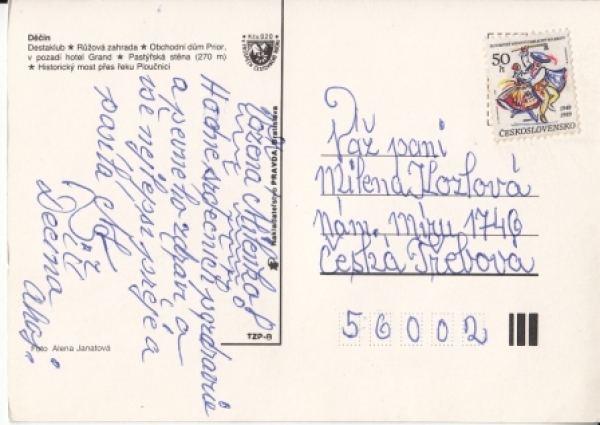 Děčín
Destaklub ★ Růžová zahrada ★ Obchodní dům Prior,
v pozadí hotel Grand ★ Pastýřská stěna (270 m)
★ Historický most přes řeku Ploučnici
Kčs 0,20
Vážená Milenko!
Hodně srdečných pozdravů
a pevného zdraví a
vše nejlepší přeje a
Děčína Ahoj!
Foto Alena Janatová
Nakladatelství PRAVDA Bratislava
TZP-B
50
h
1949
1989
ČESKOSLOVENSKO
Váž paní
Milena Kozlová
nám. Míru 1740
Česká Třebová
56002